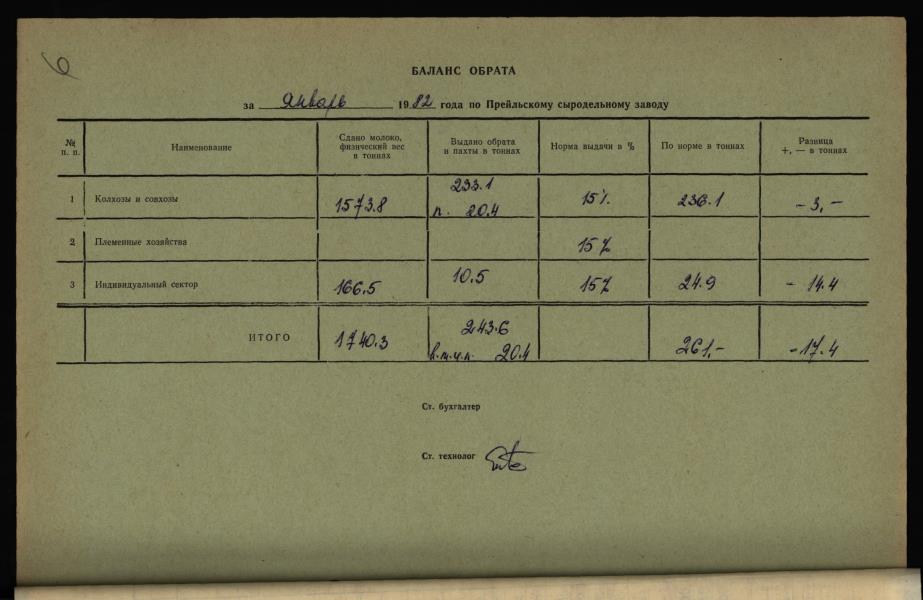 6
БАЛАНС ОБРАТА
за Январь 1982 года по Прейльскому сыродельному заводу
№ п. п. Наименование Сдано молоко, физический вес в тоннах Выдано обрата и пахты в тоннах Норма выдачи в % По норме в тоннах Разница +, — в тоннах
1 Колхозы и совхозы 1573.8 233.1 п. 20.4 15% 236.1 - 3,-
2 Племенные хозяйства 15%
3 Индивидуальный сектор 166.5 10.5 15% 24.9 - 14.4
ИТОГО 1740.3 243.6 в.т.ч.п. 20.4 261,- -17.4
Ст. бухгалтер
Ст. технолог